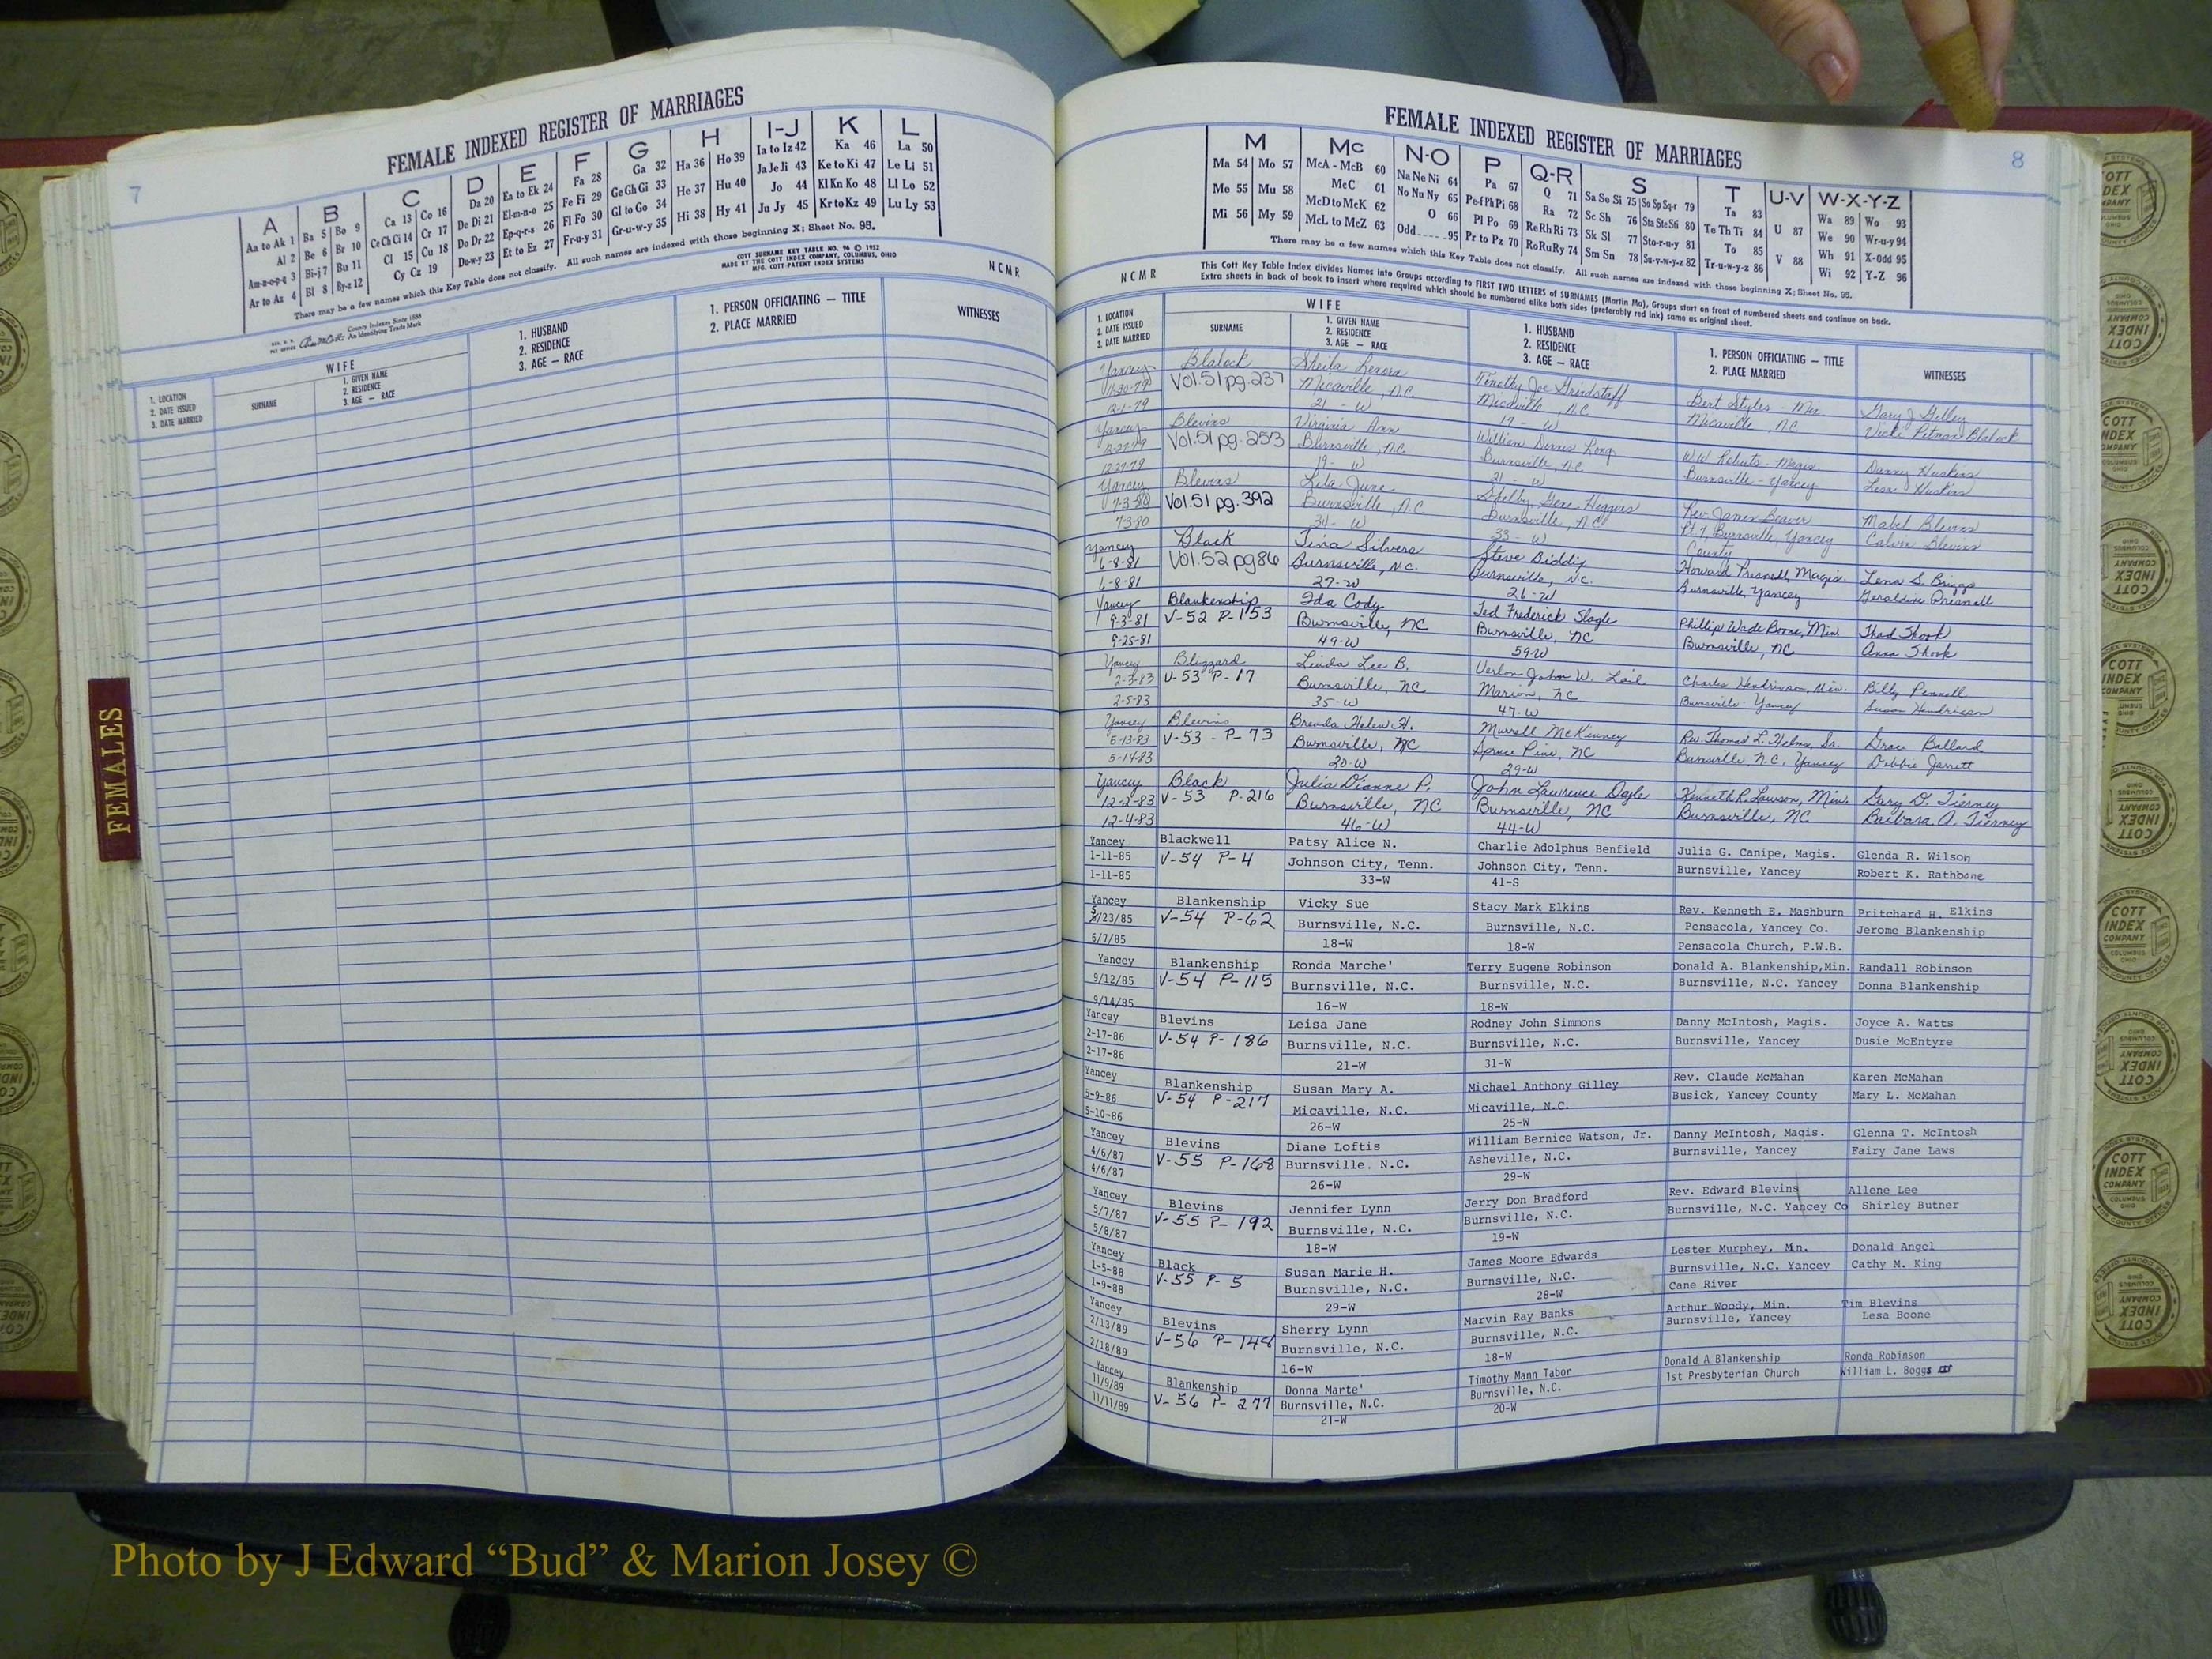 FEMALE INDEXED REGISTER OF MARRIAGES
7
A
Aa to Ak 1
Al 2
Am-n-o-p-q 3
Ar to Az 4
B
Ba 5 Bo 9
Be 6 Br 10
Bi-j 7 Bu 11
Bl 8 By-z 12
C
Ca 13 Co 16
Ce Ch Ci 14 Cr 17
Cl 15 Cu 18
Cy Cz 19
D
Da 20
De Di 21
Do Dr 22
Du-w-y 23
E
Ea to Ek 24
El-m-n-o 25
Ep-q-r-s 26
Et to Ez 27
F
Fa 28
Fe Fi 29
Fl Fo 30
Fr-u-y 31
G
Ga 32
Ge Gh Gi 33
Gl to Go 34
Gr-u-w-y 35
H
Ha 36 Ho 39
He 37 Hu 40
Hi 38 Hy 41
I-J
Ia to Iz 42
Ja Je Ji 43
Jo 44
Ju Jy 45
K
Ka 46
Ke to Ki 47
Kl Kn Ko 48
Kr to Kz 49
L
La 50
Le Li 51
Ll Lo 52
Lu Ly 53
There may be a few names which this Key Table does not classify. All such names are indexed with those beginning X; Sheet No. 95.
COTT SURNAME KEY TABLE NO. 96 © 1952
MADE BY THE COTT INDEX COMPANY, COLUMBUS, OHIO
MFG. COTT PATENT INDEX SYSTEMS
NCMR
County Indexes Since 1888
An Identifying Trade Mark
WIFE
1. LOCATION
2. DATE ISSUED
3. DATE MARRIED
SURNAME
1. GIVEN NAME
2. RESIDENCE
3. AGE — RACE
1. HUSBAND
2. RESIDENCE
3. AGE — RACE
1. PERSON OFFICIATING — TITLE
2. PLACE MARRIED
WITNESSES
FEMALES
FEMALE INDEXED REGISTER OF MARRIAGES
8
M
Ma 54 Mo 57
Me 55 Mu 58
Mi 56 My 59
Mc
McA - McB 60
McC 61
McD to McK 62
McL to McZ 63
N-O
Na Ne Ni 64
No Nu Ny 65
O 66
Odd 95
P
Pa 67
Pe-f Ph Pi 68
Pl Po 69
Pr to Pz 70
Q-R
Q 71
Ra 72
Re Rh Ri 73
Ro Ru Ry 74
S
Sa Se Si 75 So Sp Sq-r 79
Sc Sh 76 Sta Ste Sti 80
Sk Sl 77 Sto-r-u-y 81
Sm Sn 78 Su-v-w-y-z 82
T
Ta 83
Te Th Ti 84
To 85
Tr-u-w-y-z 86
U-V
U 87
V 88
W-X-Y-Z
Wa 89 Wo 93
We 90 Wr-u-y 94
Wh 91 X-Odd 95
Wi 92 Y-Z 96
There may be a few names which this Key Table does not classify. All such names are indexed with those beginning X; Sheet No. 95.
NCMR
This Cott Key Table Index divides Names into Groups according to FIRST TWO LETTERS of SURNAMES (Martin Ma), Groups start on front of numbered sheets and continue on back.
Extra sheets in back of book to insert where required which should be numbered alike both sides (preferably red ink) same as original sheet.
WIFE
1. LOCATION
2. DATE ISSUED
3. DATE MARRIED
SURNAME
1. GIVEN NAME
2. RESIDENCE
3. AGE — RACE
1. HUSBAND
2. RESIDENCE
3. AGE — RACE
1. PERSON OFFICIATING — TITLE
2. PLACE MARRIED
WITNESSES
Yancey Blalock Sheila Lenora Timothy Joe Grindstaff Bert Styles - Min. Gary J Gilley
11-30-79 Vol.51 pg.237 Micaville, N.C. Micaville, N.C. Micaville, NC Vicki Pitman Blalock
12-1-79 21 - W 19 - W
Yancey Blevins Virginia Ann William Dennis Long WW Roberts - Magis Danny Huskins
12-27-79 Vol.51 pg.253 Burnsville, NC Burnsville, NC Burnsville - Yancey Lisa Huskins
12-27-79 19 - W 21 - W
Yancey Blevins Lila June Shelby Gene Higgins Rev. James Beaver Mabel Blevins
7-3-80 Vol.51 pg.392 Burnsville, N.C Burnsville, NC Rt 7, Burnsville, Yancey Calvin Blevins
7-3-80 34 - W 33 - W County
Yancey Black Tina Silvers Steve Biddix Howard Presnell, Magis. Lena S. Briggs
6-8-81 Vol.52 pg86 Burnsville, N.C. Burnsville, N.C. Burnsville, Yancey Geraldine Presnell
6-8-81 27-W 26-W
Yancey Blankenship Ida Cody Ted Frederick Slagle Phillip Wade Boone, Min. Thad Shook
9-3-81 V-52 P-153 Burnsville, NC Burnsville, NC Burnsville, NC Anna Shook
9-25-81 49-W 59-W
Yancey Blizzard Linda Lee B. Verlon John W. Lail Charles Hendrixson, Min. Billy Pennell
2-3-83 V-53 P-17 Burnsville, NC Marion, NC Burnsville - Yancey Susan Hendrixson
2-5-83 35-W 47-W
Yancey Blevins Brenda Helen H. Murrell McKinney Rev. Thomas L. Helms, Sr. Grace Ballard
5-13-83 V-53 - P-73 Burnsville, NC Spruce Pine, NC Burnsville N.C. Yancey Debbie Jarrett
5-14-83 20-W 29-W
Yancey Black Julia Dianne P. John Lawrence Ogle Kenneth R. Lawson, Min. Gary D. Tierney
12-2-83 V-53 P-216 Burnsville, NC Burnsville, NC Burnsville, NC Barbara A. Tierney
12-4-83 46-W 44-W
Yancey Blackwell Patsy Alice N. Charlie Adolphus Benfield Julia G. Canipe, Magis. Glenda R. Wilson
1-11-85 V-54 P-4 Johnson City, Tenn. Johnson City, Tenn. Burnsville, Yancey Robert K. Rathbone
1-11-85 33-W 41-S
Yancey Blankenship Vicky Sue Stacy Mark Elkins Rev. Kenneth E. Mashburn Pritchard H. Elkins
5/23/85 V-54 P-62 Burnsville, N.C. Burnsville, N.C. Pensacola, Yancey Co. Jerome Blankenship
6/7/85 18-W 18-W Pensacola Church, F.W.B.
Yancey Blankenship Ronda Marche' Terry Eugene Robinson Donald A. Blankenship,Min. Randall Robinson
9/12/85 V-54 P-115 Burnsville, N.C. Burnsville, N.C. Burnsville, N.C. Yancey Donna Blankenship
9/14/85 16-W 18-W
Yancey Blevins Leisa Jane Rodney John Simmons Danny McIntosh, Magis. Joyce A. Watts
2-17-86 V-54 P-186 Burnsville, N.C. Burnsville, N.C. Burnsville, Yancey Dusie McEntyre
2-17-86 21-W 31-W
Yancey Blankenship Susan Mary A. Michael Anthony Gilley Rev. Claude McMahan Karen McMahan
5-9-86 V-54 P-217 Micaville, N.C. Micaville, N.C. Busick, Yancey County Mary L. McMahan
5-10-86 26-W 25-W
Yancey Blevins Diane Loftis William Bernice Watson, Jr. Danny McIntosh, Magis. Glenna T. McIntosh
4/6/87 V-55 P-168 Burnsville. N.C. Asheville, N.C. Burnsville, Yancey Fairy Jane Laws
4/6/87 26-W 29-W
Yancey Blevins Jennifer Lynn Jerry Don Bradford Rev. Edward Blevins Allene Lee
5/7/87 V-55 P-192 Burnsville, N.C. Burnsville, N.C. Burnsville, N.C. Yancey Co Shirley Butner
5/8/87 18-W 19-W
Yancey Black Susan Marie H. James Moore Edwards Lester Murphey, Min. Donald Angel
1-5-88 V-55 P-5 Burnsville, N.C. Burnsville, N.C. Burnsville, N.C. Yancey Cathy M. King
1-9-88 29-W 28-W Cane River
Yancey Blevins Sherry Lynn Marvin Ray Banks Arthur Woody, Min. Tim Blevins
2/13/89 V-56 P-148 Burnsville, N.C. Burnsville, N.C. Burnsville, Yancey Lesa Boone
2/18/89 16-W 18-W
Yancey Blankenship Donna Marte' Timothy Mann Tabor Donald A Blankenship Ronda Robinson
11/9/89 V-56 P-277 Burnsville, N.C. Burnsville, N.C. 1st Presbyterian Church William L. Boggs III
11/11/89 21-W 20-W
COTT INDEX COMPANY COLUMBUS OHIO
Photo by J Edward “Bud” & Marion Josey ©